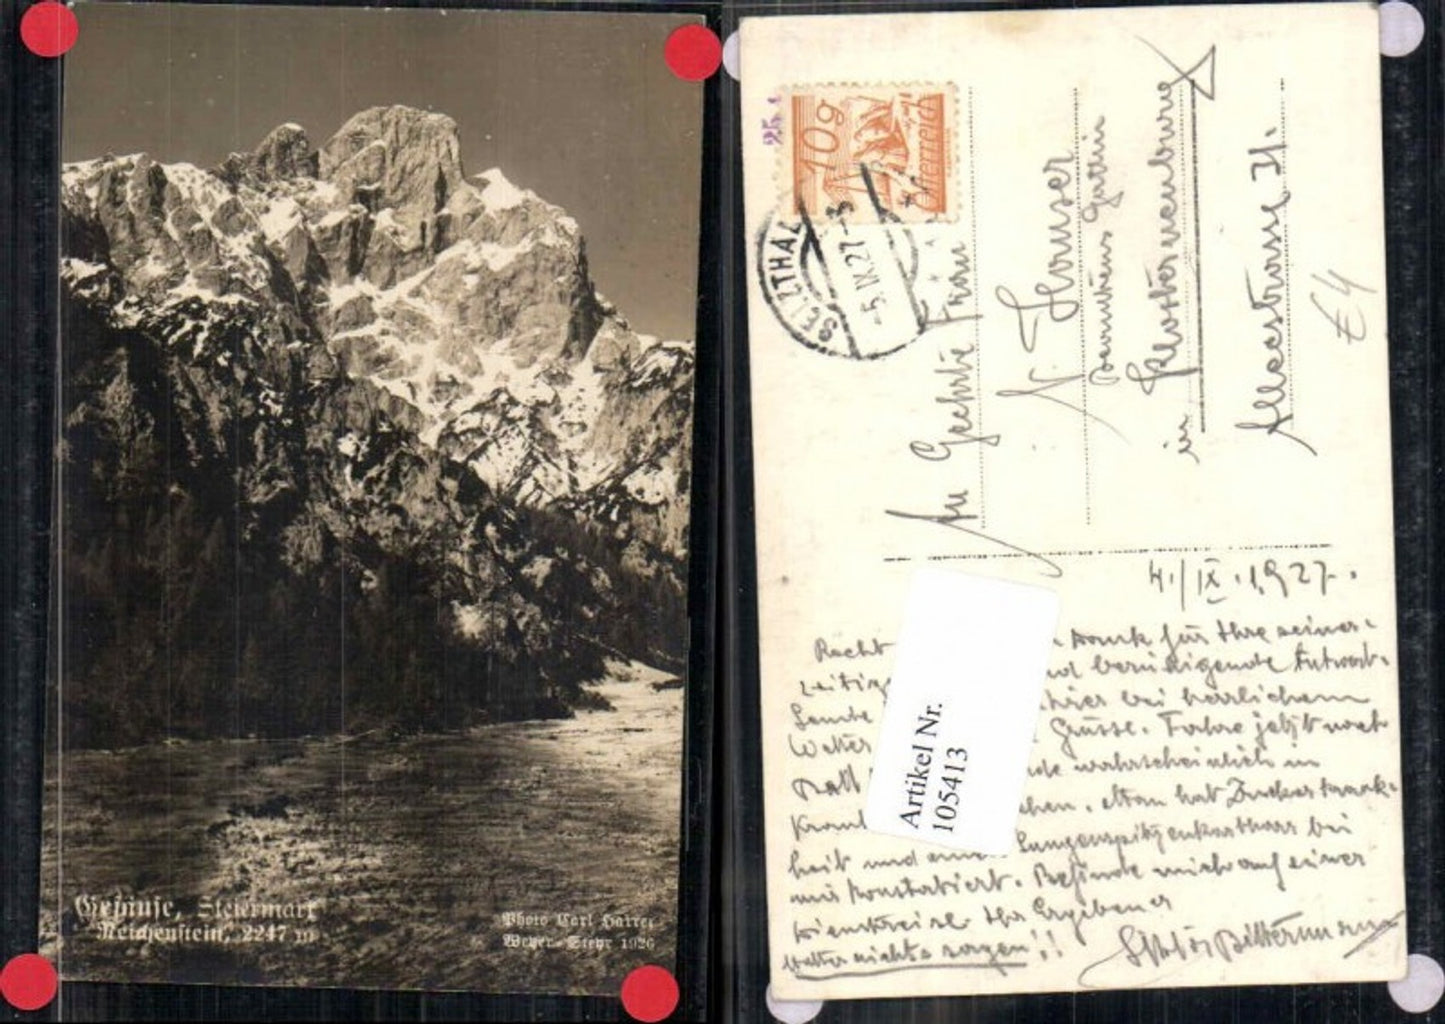 Gesäuse, Steiermark
Reichenstein, 2247 m
Photo Carl Harrer
Weyer-Steyr 1926
10g
Österreich
SELZTHAL
-5.IX.27-3
An Geehrte Frau
N. Hauser
Beamtens Gattin
in Klosterneuburg
Alleestrasse 21.
€4
4./IX.1927.
Recht Dank für Ihre seiner-
zeitige und beruhigende Antwort.
Sende bei herrlichem
Wetter Grüsse. Fahre jetzt nach
wahrscheinlich in
Man hat Zuckerkrank-
heit und Lungenspitzenkatharr bei
mir konstatiert. Befinde mich auf einer
Dienstreise Ihr Ergebener
nichts sagen!!
Artikel Nr.
105413